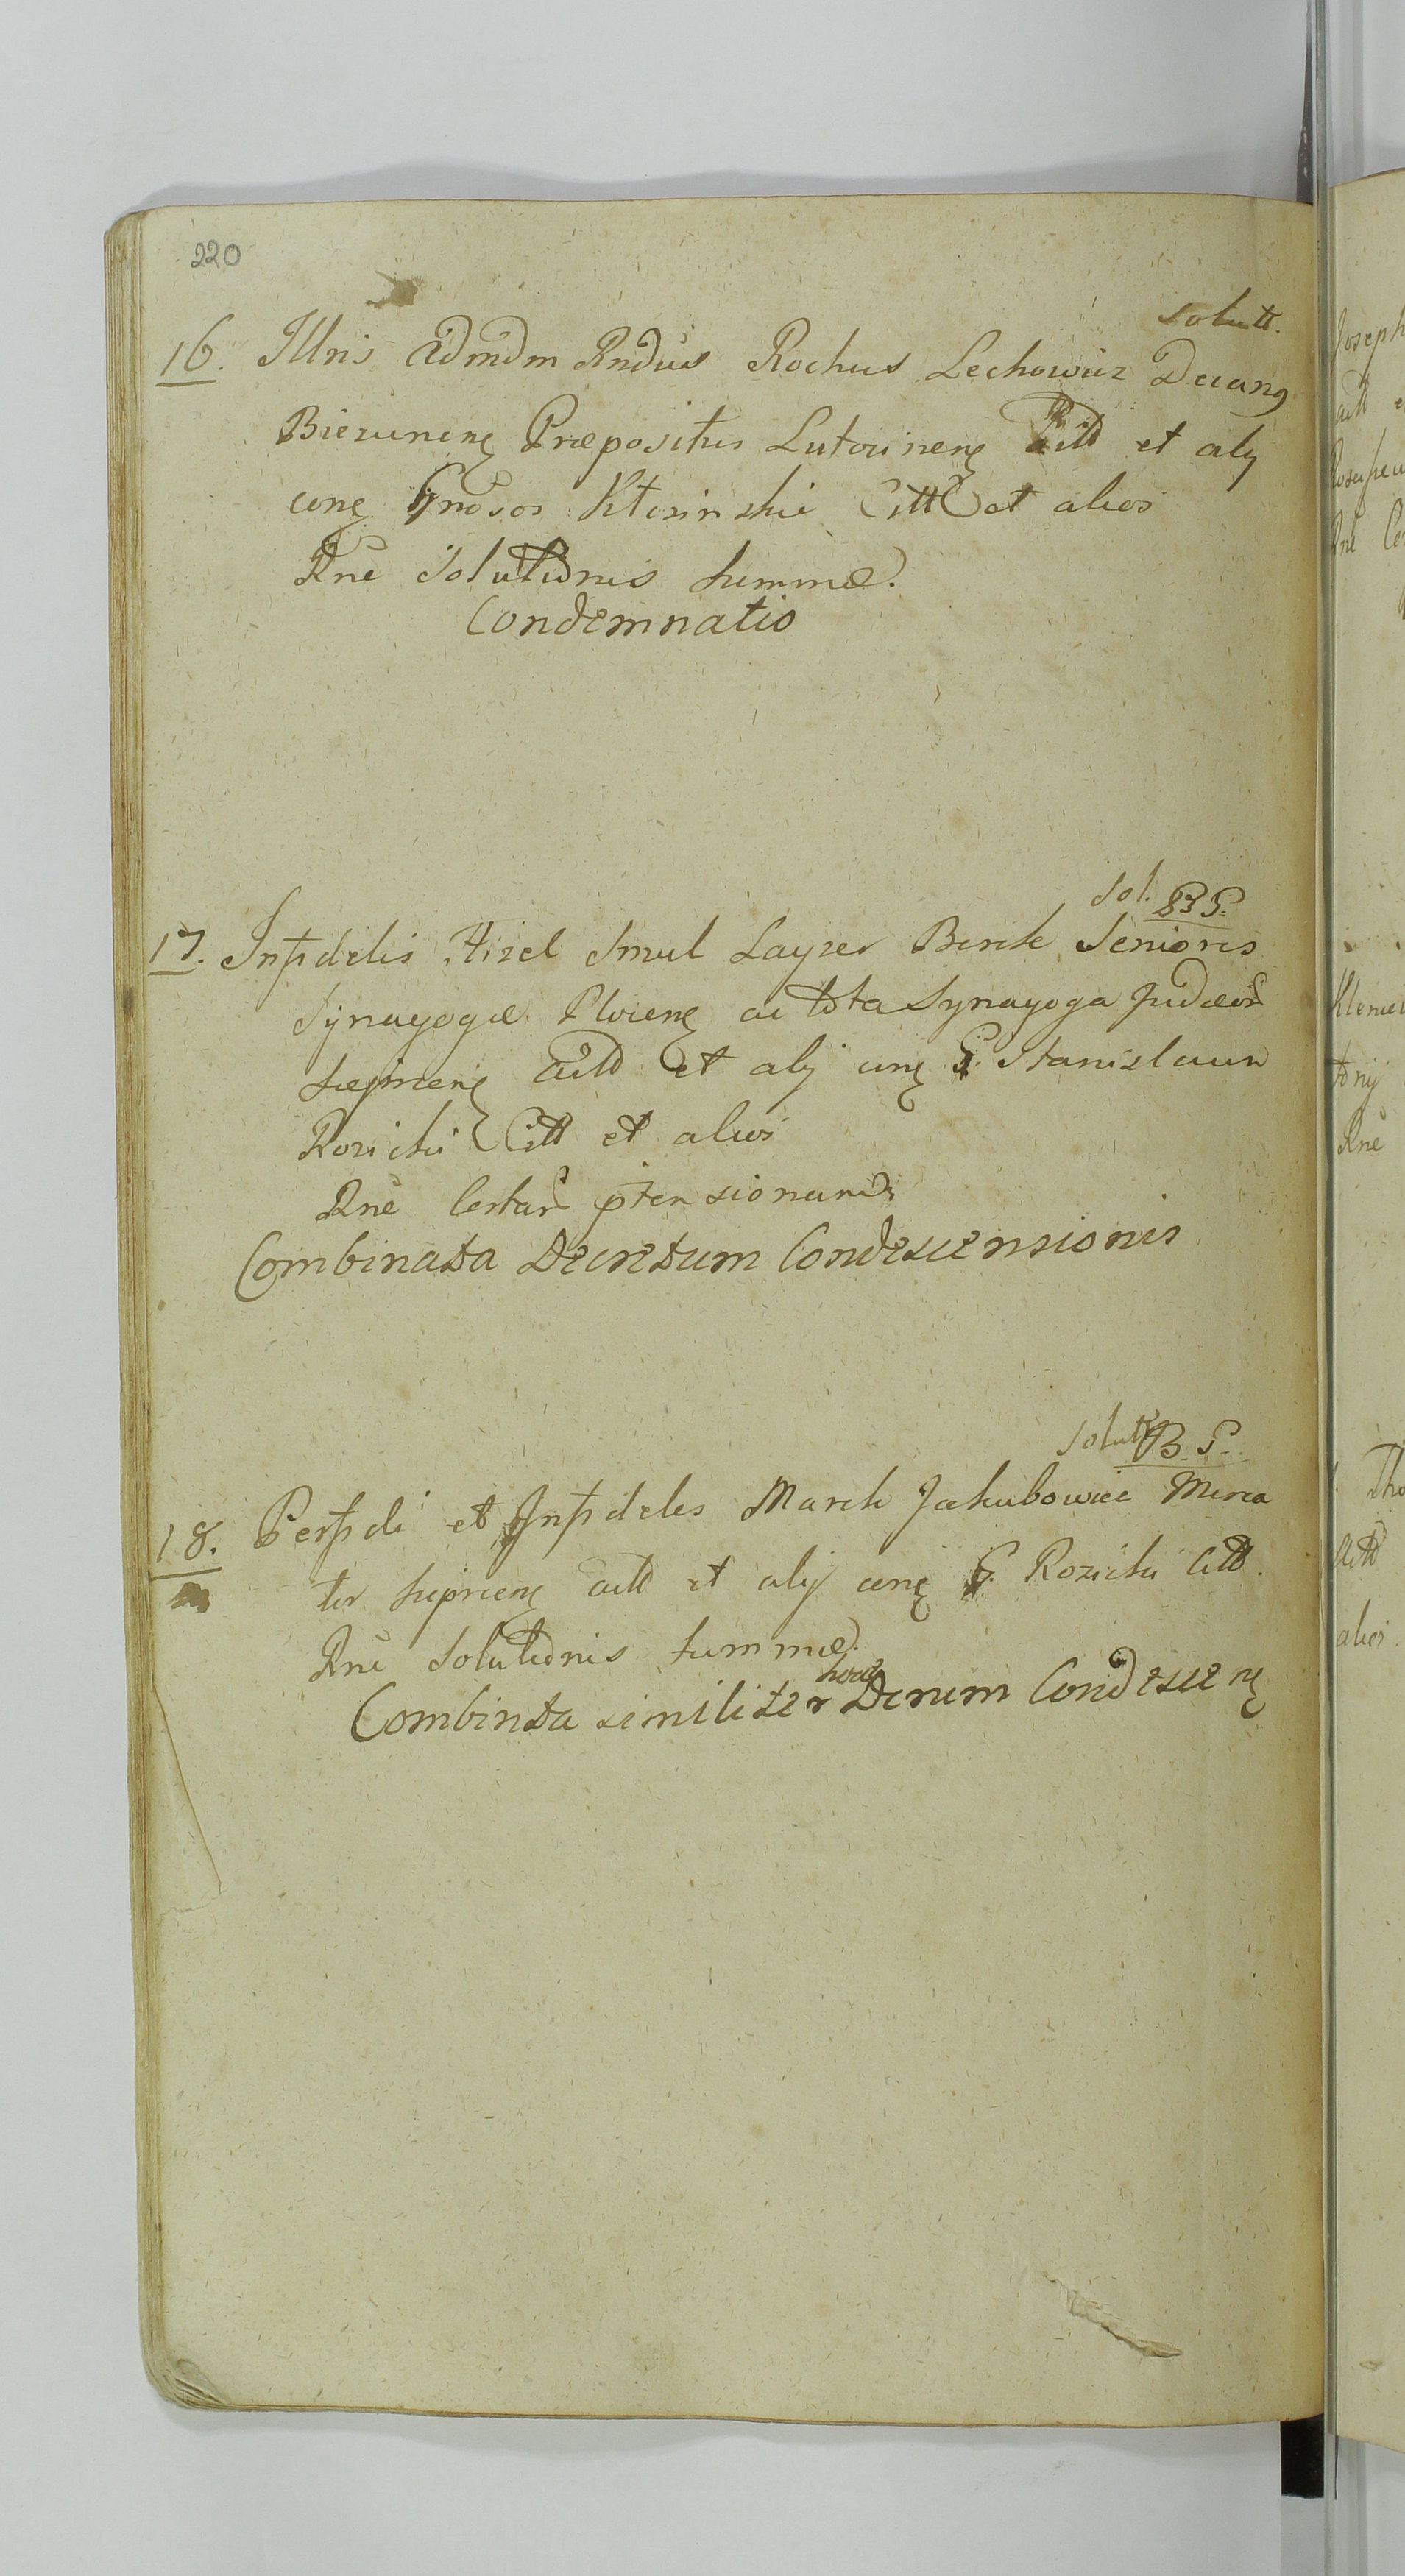 220
Solutt.
16. Illris Admdm Rndus Rochus Lechowicz Decang
Bieżunenę Præpositus Lutocinenę Actt et alij
conę Gnosos Ktosinskie Citt et alios
Rnè Solutionis Summæ.
Condemnatio
Sol. B P.
17. Infidelis Hizel Smul Layzer Berek Seniores
Synagogæ Plocenę ac tota Synagoga Judæor
Sieprcenę Actt et alij conę G. Stanislaum
Rozicki Citt et alios
Rnè Certar ptensionum
Combinata Decretum Condescensionis
Solutt B. P.
18. Perfidi et Infideles Marek Jakubowicz Merca
tor Sieprcenę actt et alij conę G. Rozicki Citt.
Rnè Solutionis Summæ.
Combinta similiter Dcrum Condescenę
Joseph
actt
Rnè
Rnè
Actt
alios.